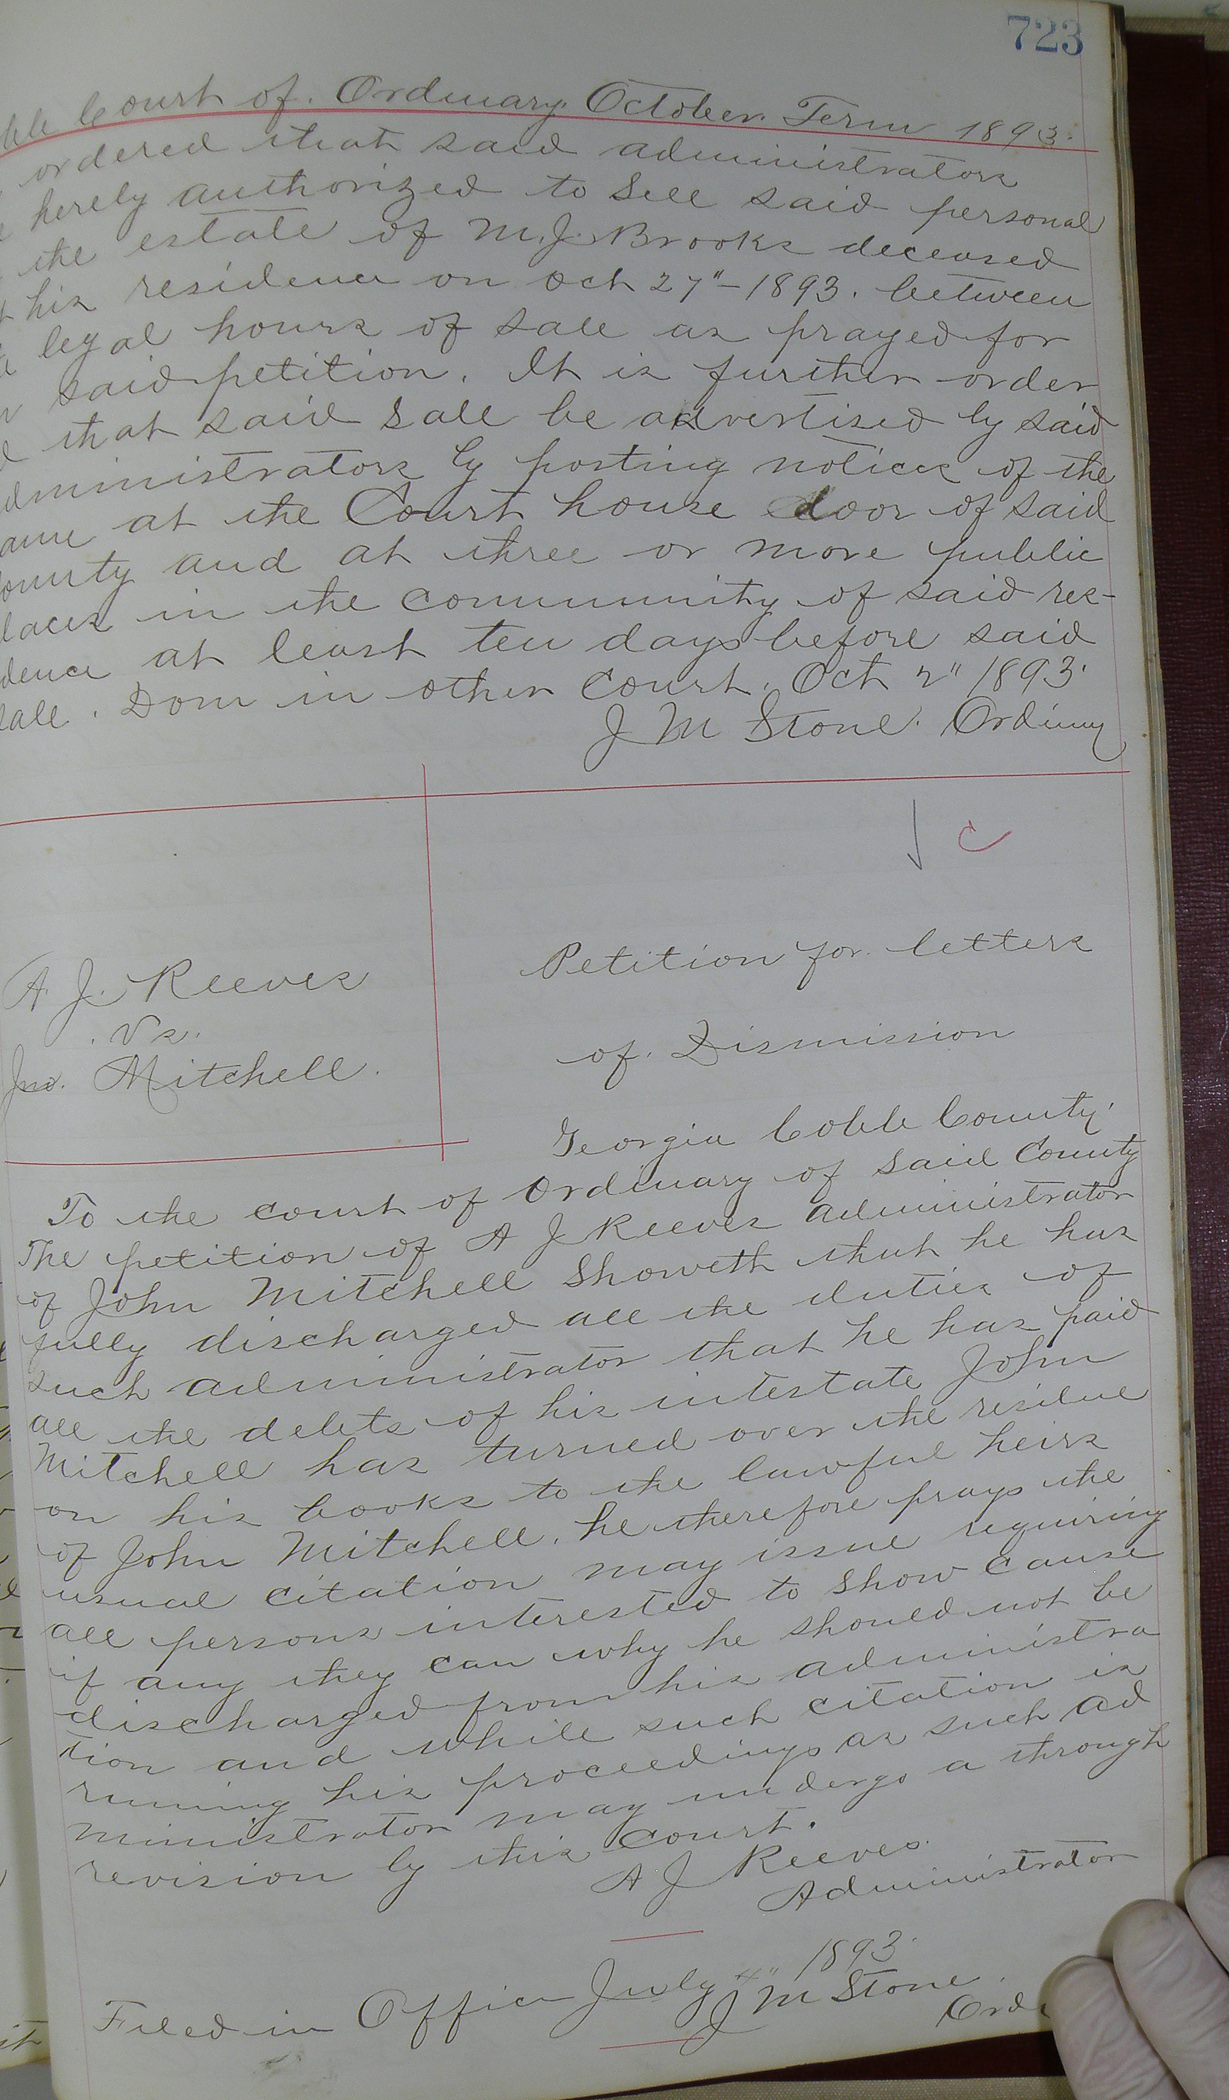 723
Court of. Ordinary. October. Term 1893.
ordered that said administrators
hereby authorized to Sell said personal
the estate of M.J. Brooks deceased
his residence on Oct 27" - 1893. between
legal hours of sale as prayed for
said petition. It is further order
that said Sale be advertised by said
dministrators by posting notices of the
ame at the Court house door of said
ounty and at three or more public
laces in the community of said res-
dence at least ten days before said
sale. Don in other Court. Oct 2" 1893.
J M Stone. Ordinary
c
A. J. Reeves
. Vs.
Jno. Mitchell.
Petition for. letters
of. Dismission
Georgia Cobb County.
To the court of Ordinary of Said County
The petition of A J Reeves administrator
of John Mitchell Showeth that he has
fully discharged all the duties of
such administrator that he has paid
all the debts of his intestate John
Mitchell has turned over the residue
on his books to the lawful heirs
of John Mitchell. he therefore prays the
usual citation may issue requiring
all persons interested to Show Cause
if any they can why he should not be
discharged from his administra
tion and while such citation is
running his proceedings as such ad
ministrator may undergo a through
revision by this Court.
A J Reeves.
Administrator
Filed in Office July 1893.
J M Stone.
Ordi